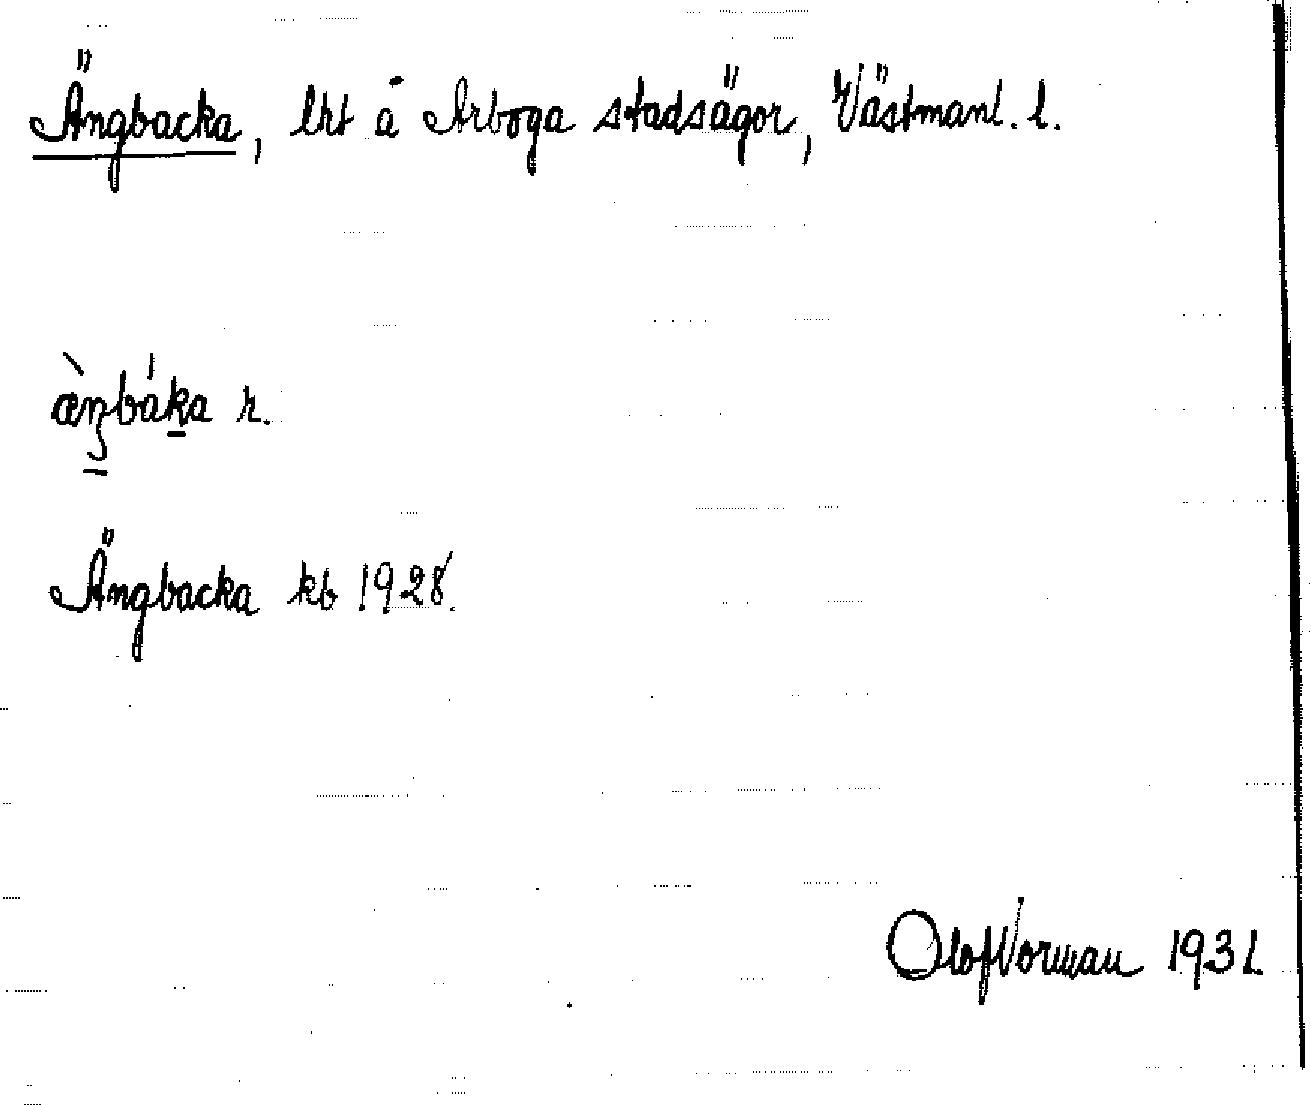 Ängbacka, lht å Arboga stadsägor, Västmanl. l.
æ̀ŋbáka r.
Ängbacka kb 1928.
Olof Norman 1931.